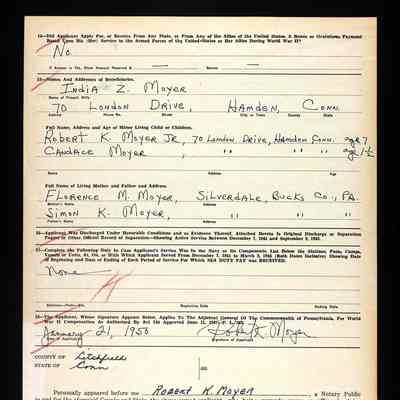 14—Did Applicant Apply For, or Receive From Any State, or From Any of the Allies of the United States, A Bonus or Gratuitous Payment
Based Upon His (Her) Service in the Armed Forces of the United States or Her Allies During World War II?
No.
If Answer is Yes, Show Amount Received $
15—Names, And Addresses of Beneficiaries.
INDIA Z. MOYER
Name of Present Wife
70 LONDON DRIVE, HAMDEN, CONN.
Address House No. Street City or Town County State
Full Name, Address and Age of Minor Living Child or Children.
ROBERT K. MOYER JR, 70 London Drive, Hamden Conn. age 7
CANDACE MOYER, " " " age 1½
Name Address Age
Full Name of Living Mother and Father and Address.
FLORENCE M. MOYER, SILVERDALE, BUCKS CO., PA.
Mother's Name Address
SIMON K. MOYER, " " "
Father's Name Address
16—Applicant Was Discharged Under Honorable Conditions and as Evidence Thereof, Attached Hereto is Original Discharge or Separation
Papers or Other Official Record of Separation—Showing Active Service Between December 7, 1941 and September 2, 1945.
17—Complete the Following Only In Case Applicant's Service Was in the Navy or its Components List Below the Stations, Posts, Camps,
Vessels or Units, Et, Ofs, or With Which Applicant Served From December 7, 1941 to March 2, 1946 (Both Dates Inclusive) Showing Date
of Beginning and Date of Ending of Each Period of Service For Which SEA DUTY PAY was RECEIVED.
None
Beginning Date Ending Date
18—The Applicant, Whose Signature Appears Below, Applies To The Adjutant General Of The Commonwealth of Pennsylvania, For World
War II Compensation As Authorized By Act
January 21, 1950 Robert K. Moyer
Date of Application Signature of Applicant
COUNTY OF Litchfield
STATE OF Conn
Personally appeared before me ROBERT K. MOYER a Notary Public